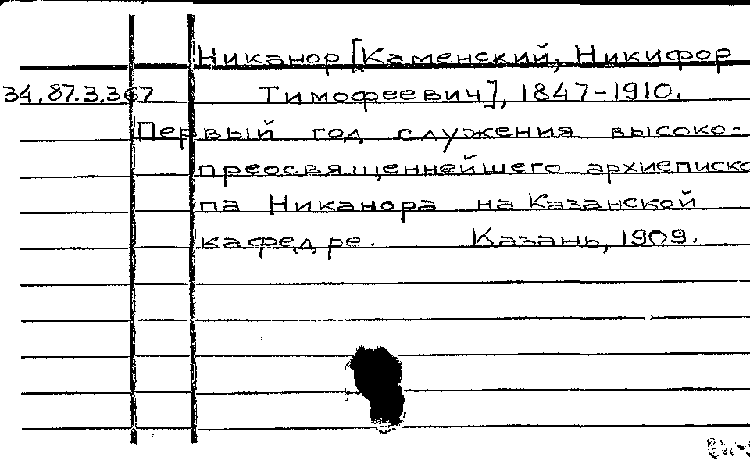 Никанор [Каменский, Никифор
34.87.3.367 Тимофеевич], 1847-1910.
Первый год служения высоко-
преосвященнейшего архиеписко
па Никанора на Казанской
кафедре. Казань, 1909.